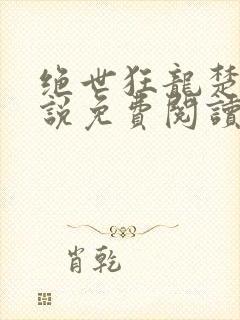 绝世狂龍楚
說免費閱讀
肖乾